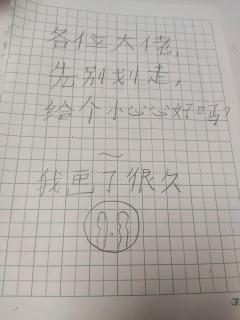 各位大佬,
先别划走,
给个小心心好吗?
~
我画了很久